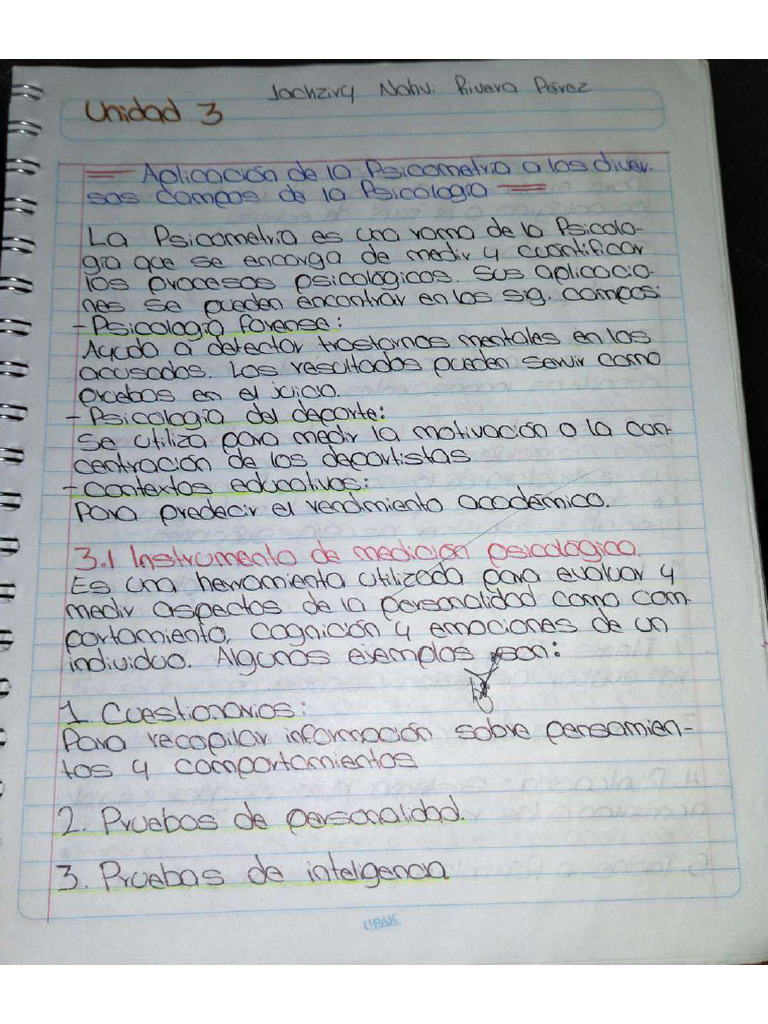 Jachziry Nahvi Rivera Pérez
Unidad 3
Aplicación de la Psicometria a los diver-
sos campos de la Psicologia
La Psicometria es una rama de la Psicolo-
gia que se encarga de medir y cuantificar
los procesos psicológicos. Sus aplicacio-
nes se pueden encontrar en los sig. campos:
- Psicologia forense:
Ayuda a detectar trastornos mentales en los
acusados. Los resultados pueden servir como
pruebas en el juicio.
- Psicologia del deporte:
Se utiliza para medir la motivación o la con-
centración de los deportistas
- Contextos educativos:
Para predecir el rendimiento académico.
3.1 Instrumento de medición psicológico.
Es una herramienta utilizada para evaluar y
medir aspectos de la personalidad como com-
portamiento, cognición y emociones de un
individuo. Algunos ejemplos son:
1. Cuestionarios:
Para recopilar información sobre pensamien-
tos y comportamientos
2. Pruebas de personalidad.
3. Pruebas de inteligencia
URBAK